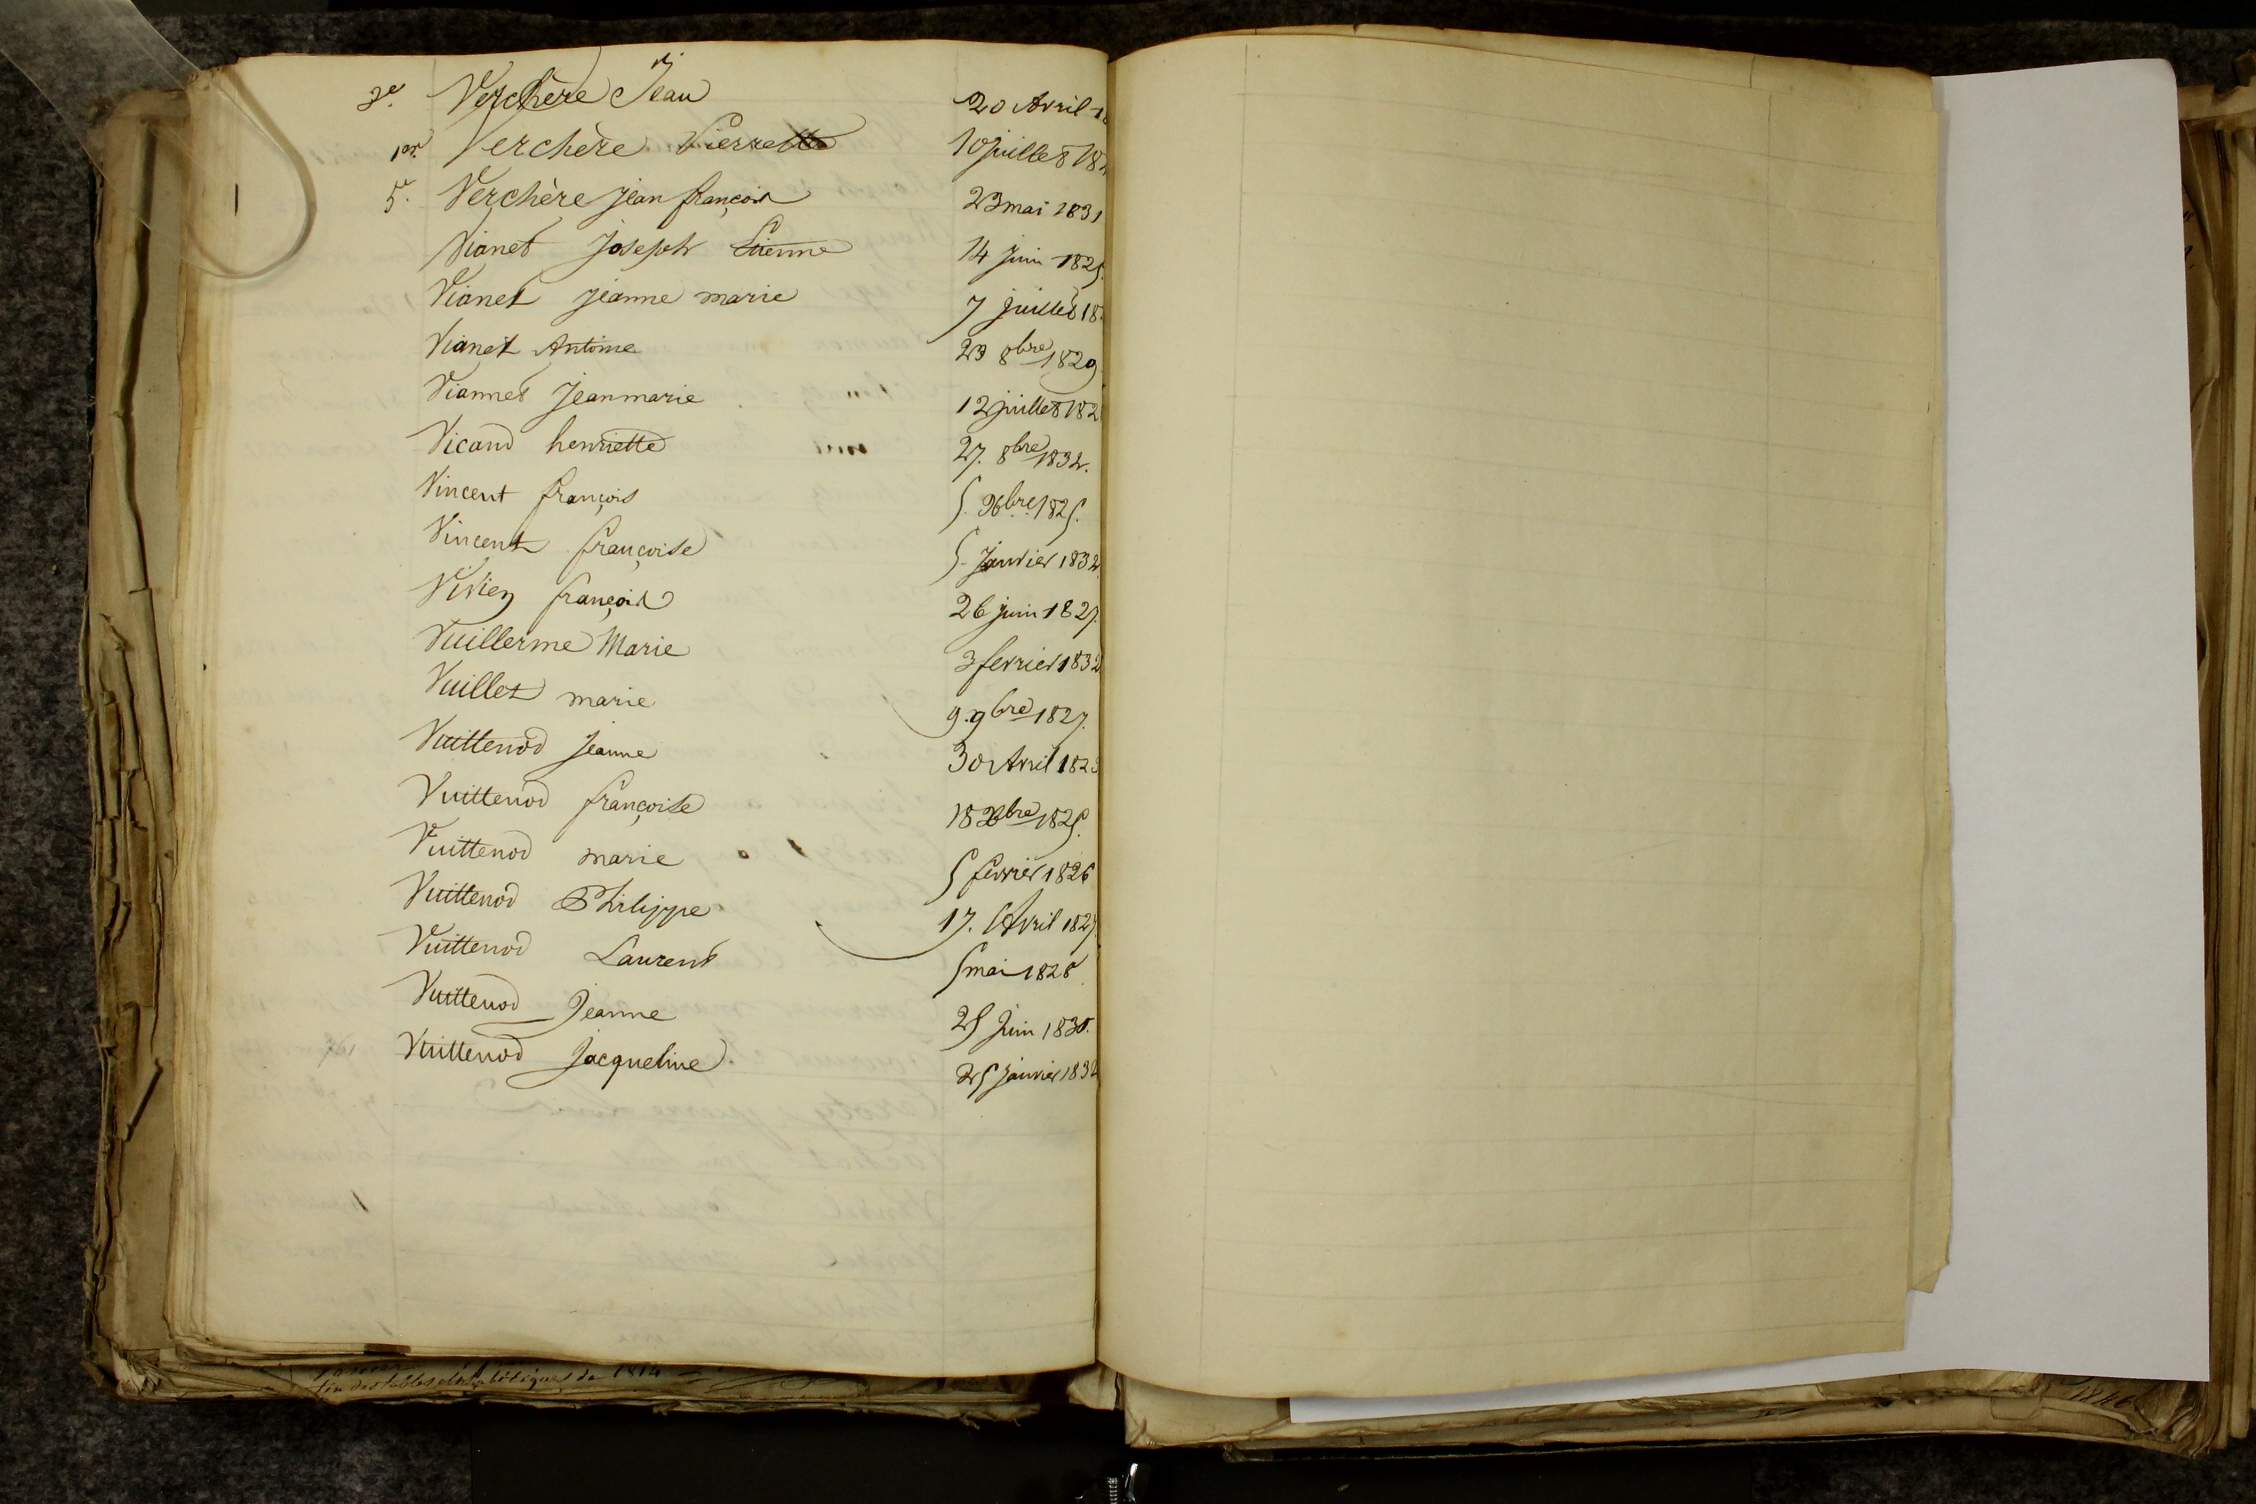 3e. Verchère Jean 20 Avril 18
1er. Verchère Pierrette 10 juillet 182
5e. Verchère jean françois 23 mai 1831
Vianet Joseph Etienne 14 juin 1825.
Vianet jeanne marie 7 juillet 18
Vianet Antoine 23 8bre 1829
Viannet Jeanmarie 12 juillet 182
Vicand henriette 27. 8bre 1832.
Vincent françois 5. Xbre 1825.
Vincent françoise 5. Janvier 1832.
Vivien françois 26 juin 1827.
Vuillerme Marie 3 fevrier 1832
Vuillet marie 9. 9bre 1827.
Vuittenod Jeanne 30 Avril 1823
Vuittenod françoise 18 Xbre 1825.
Vuittenod marie 5 fevrier 1826
Vuittenod Philippe 17. Avril 1827.
Vuittenod Laurent 5 mai 1828.
Vuittenod Jeanne 25 Juin 1830.
Vuittenod Jacqueline 25 janvier 1832
fin des tables alphabétiques de 1814